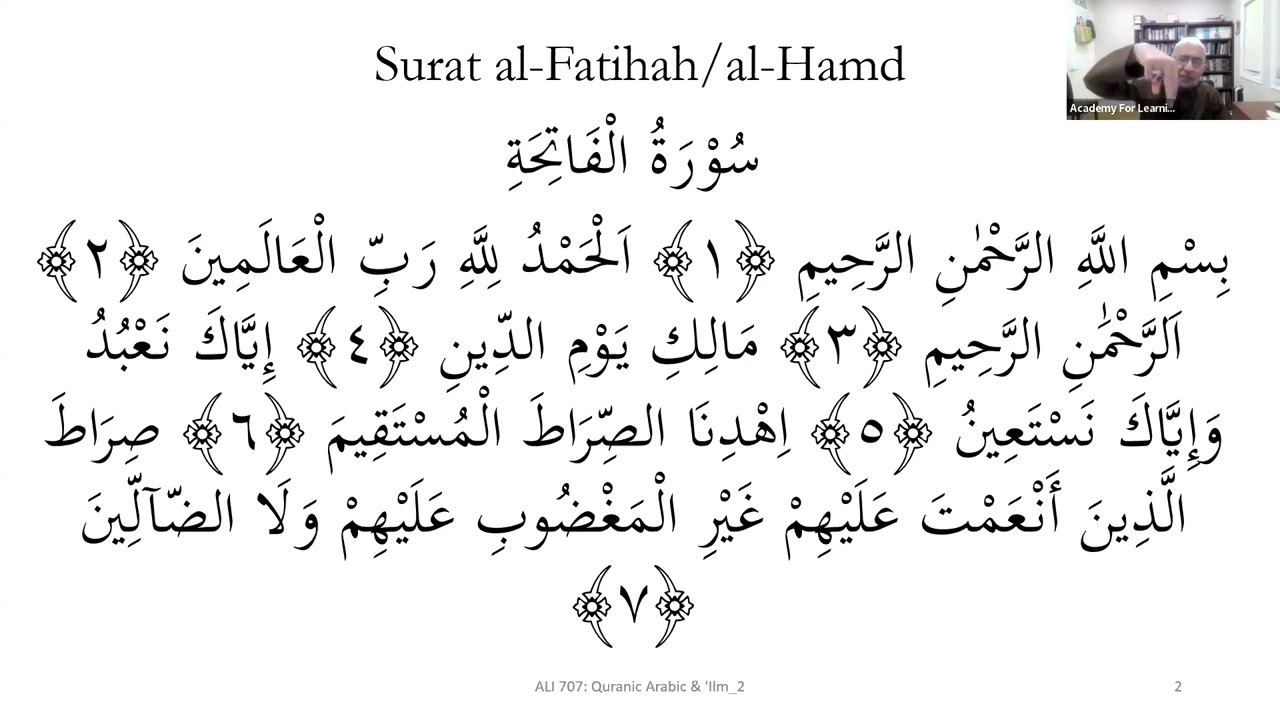 Surat al-Fatihah/al-Hamd
Academy For Learni...
سُوْرَةُ الْفَاتِحَةِ
بِسْمِ اللَّهِ الرَّحْمٰنِ الرَّحِيمِ ﴿١﴾ اَلْحَمْدُ لِلَّهِ رَبِّ الْعَالَمِينَ ﴿٢﴾
اَلرَّحْمٰنِ الرَّحِيمِ ﴿٣﴾ مَالِكِ يَوْمِ الدِّينِ ﴿٤﴾ إِيَّاكَ نَعْبُدُ
وَإِيَّاكَ نَسْتَعِينُ ﴿٥﴾ اِهْدِنَا الصِّرَاطَ الْمُسْتَقِيمَ ﴿٦﴾ صِرَاطَ
الَّذِينَ أَنْعَمْتَ عَلَيْهِمْ غَيْرِ الْمَغْضُوبِ عَلَيْهِمْ وَلَا الضَّآلِّينَ
﴿٧﴾
ALI 707: Quranic Arabic & 'Ilm_2
2